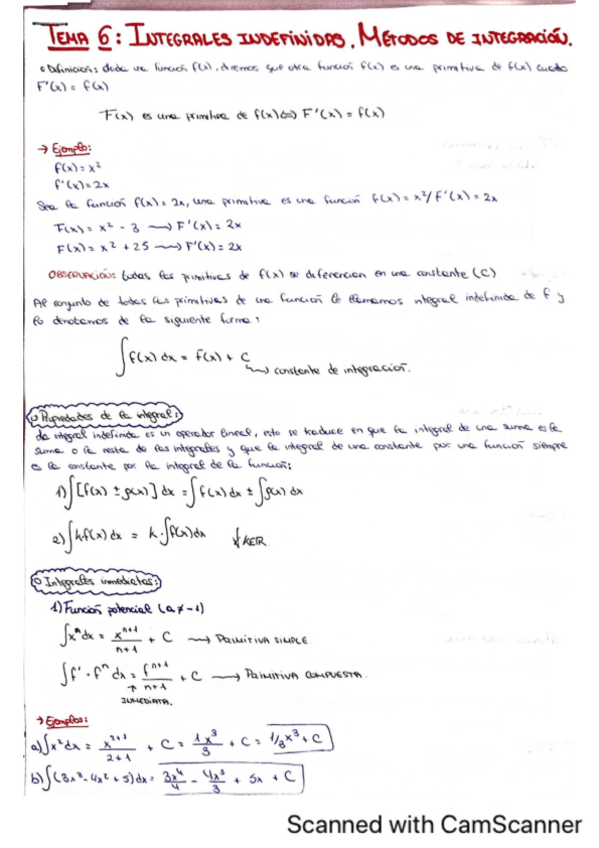 TEMA 6: INTEGRALES INDEFINIDAS. MÉTODOS DE INTEGRACIÓN.
Definición: dada una función f(x), diremos que otra función F(x) es una primitiva de f(x) cuando
F'(x) = f(x)
F(x) es una primitiva de f(x) ⇔ F'(x) = f(x)
→ Ejemplo:
f(x) = x²
f'(x) = 2x
Sea la función f(x) = 2x, una primitiva es una función F(x) = x² / F'(x) = 2x
F(x) = x² - 3 ⟶ F'(x) = 2x
F(x) = x² + 25 ⟶ F'(x) = 2x
OBSERVACIÓN: todas las primitivas de f(x) se diferencian en una constante (C)
Al conjunto de todas las primitivas de una función le llamamos integral indefinida de f y
lo denotamos de la siguiente forma:
∫f(x) dx = F(x) + C
⟶ constante de integración.
Propiedades de la integral:
La integral indefinida es un operador lineal, esto se traduce en que la integral de una suma es la
suma o la resta de las integrales y que la integral de una constante por una función siempre
es la constante por la integral de la función:
1) ∫[f(x) ± g(x)] dx = ∫f(x) dx ± ∫g(x) dx
2) ∫k·f(x) dx = k · ∫f(x) dx
○ Integrales inmediatas:
1) Función potencial (a ≠ -1)
∫xⁿ dx = xⁿ⁺¹/n+1 + C ⟶ PRIMITIVA SIMPLE
∫f' · fⁿ dx = fⁿ⁺¹/n+1 + C ⟶ PRIMITIVA COMPUESTA.
↑
INMEDIATA.
→ Ejemplos:
a) ∫x² dx = x²⁺¹/2+1 + C = 1x³/3 + C = 1/3 x³ + C
b) ∫(3x³ - 4x² + 5) dx = 3x⁴/4 - 4x³/3 + 5x + C
Scanned with CamScanner